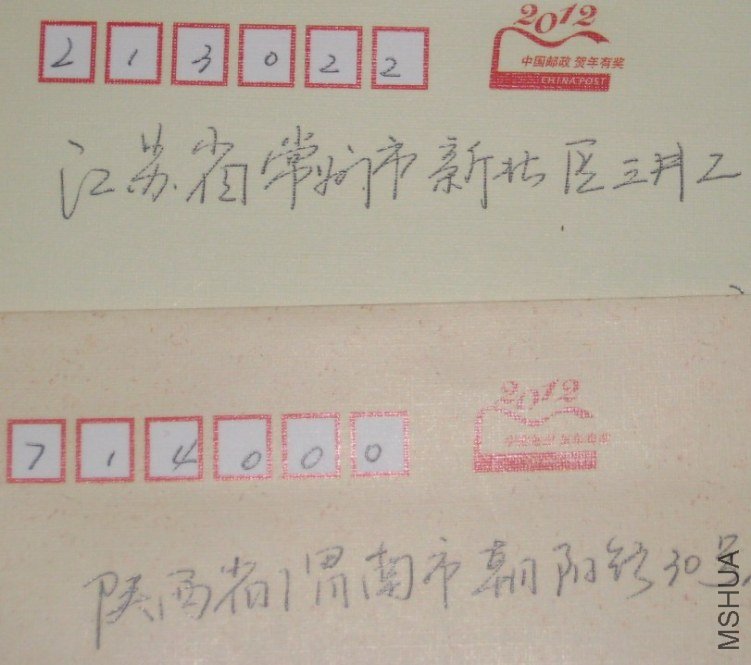 213022
2012
中国邮政 贺年有奖
CHINA POST
江苏省常州市新北区三井工
714000
2012
中国邮政 贺年有奖
陕西省渭南市朝阳路30号
MSHUA